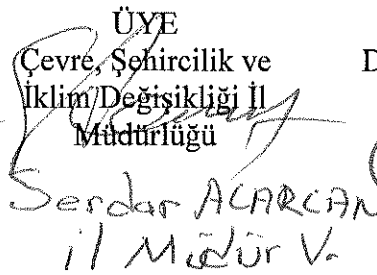 ÜYE
Çevre, Şehircilik ve
İklim Değişikliği İl
Müdürlüğü
D
Serdar ACARCAN
il Müdür V.